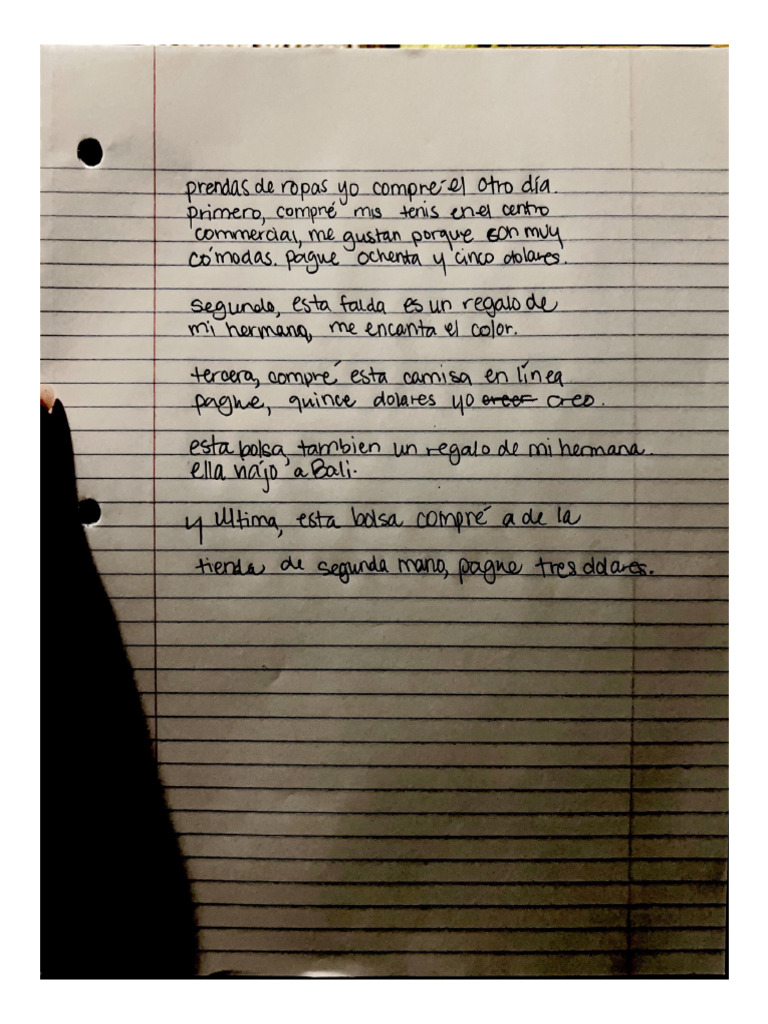 prendas de ropas yo compré el otro día.
primero, compré mis tenis en el centro
commercial, me gustan porque son muy
cómodas. pague ochenta y cinco dolares.
segundo, esta falda es un regalo de
mi hermana, me encanta el color.
tercera, compré esta camisa en línea
pague, quince dolares yo creo.
esta bolsa, tambien un regalo de mi hermana.
ella viajó a Bali.
y última, esta bolsa compré a de la
tienda de segunda mano, pague tres dolares.